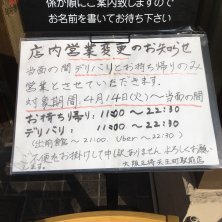 係が順にご案内致しますので
お名前を書いてお待ち下さい
店内営業変更のお知らせ
当面の間デリバリとお持ち帰りのみ
営業とさせていただきます。
対象期間:4月14日(火)〜当面の間
お持ち帰り:11:00 〜 22:30
デリバリ:11:00 〜 22:30
(出前館 〜 21:00. Uber 〜 22:30)
ご不便お掛けして申し訳ありません よろしくお願い
します。
大阪王将天王町駅前店